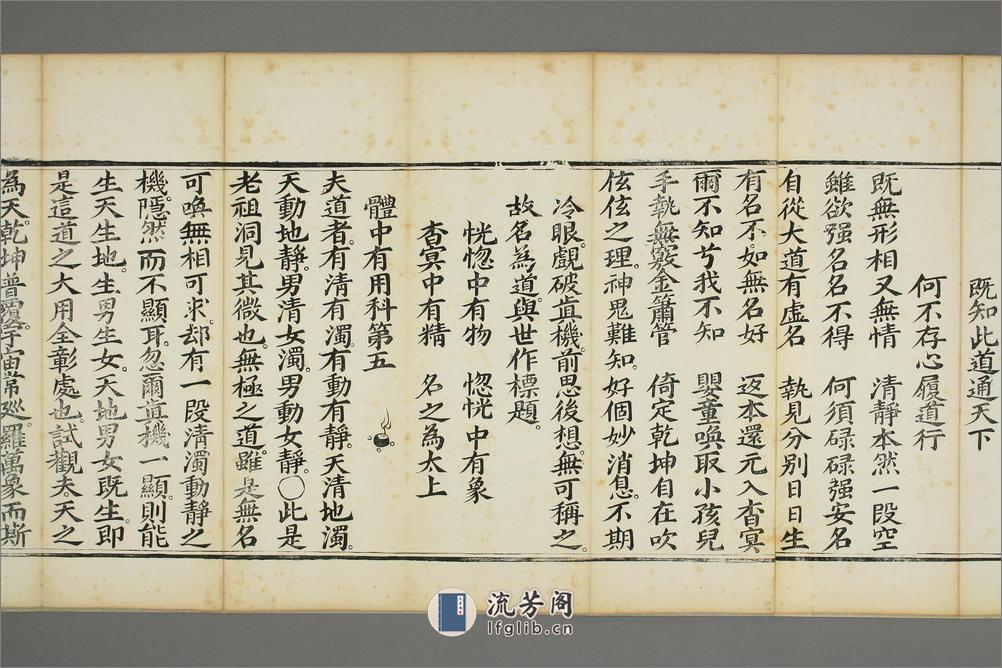 既知此道通天下
何不存心履道行
既無形相又無情　清靜本然一段空
雖欲强名名不得　何須碌碌强安名
自從大道有虛名　執見分別日日生
有名不如無名好　返本還元入杳冥
爾不知兮我不知　嬰童喚取小孩兒
手執無竅金簫管　倚定乾坤自在吹
伭伭之理。神鬼難知。好個妙消息。不期
冷眼。覷破眞機。前思後想。無可稱之。
故名為道。與世作標題。
恍惚中有物　惚恍中有象
杳冥中有精　名之為太上
體中有用科第五
夫道者。有清有濁。有動有靜。天清地濁。
天動地靜。男清女濁。男動女靜。〇此是
老祖洞見其微也。無極之道。雖是無名
可喚無相可求。却有一段清濁動靜之
機。隱然而不顯耳。忽爾眞機一顯。則能
生天生地。生男生女。天地男女既生。即
是這道之大用全彰處也。試觀夫。天之
為天。乾坤普覆。宇宙常廵。羅萬象而斯
流芳阁
lfglib.cn